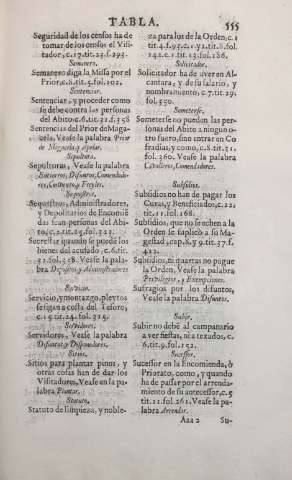 TABLA. 555
Seguridad de los censos ha de
tomar de los censos el Visi-
tador, c.17.tit.23.f.295.
Semanero.
Semanero diga la Missa por el
Prior, c.8.tit.5.fol.102.
Sentenciar.
Sentenciar, y proceder como
se debe contra las personas
del Abito c.6.tit.32.f.358
Sentencias del Prior de Maga-
cela, Vease la palabra Prior
de Magacela, y Apelar.
Sepultura.
Sepulturas, Vease la palabra
Entierros, Difuntos, Comendado-
res, Conventos, y Freyles.
Sequestros.
Sequestros, Administradores,
y Depositarios de Encomie
das sean personas del Abi-
to, c. tit.25.fol.323.
Secrestar quando se puede los
bienes del acusado, c.6.tit.
32.fol.358. Vease la pala-
bra Depositos, y Administradores
Servicio.
Servicio, y montazgo, pleytos
se sigan a costa del Tesoro,
c.15.tit.24.fol.315.
Servidores.
Servidores, Vease la palabra
Difuntos, y
Sitios.
Sitios para plantar pinos, y
otras cosas han de dar los
Visitadores, Vease en la pa-
labra Plantar.
Statuto.
Statuto de limpieza, y noble-
za para los de la Orden, c.1
tit.4.f.93.c.1.y2.tit.8.fol.
142.c.1.tit.13.fol.186.
Solicitador.
Solicitador ha de aver en Al-
cantara, y de su salario, y
nombramiento, c.7.tit.29.
fol.350.
Someterse.
Someterse no pueden las per-
sonas del Abito a ningun o-
tro fuero, sino entrar en Co-
fradias, y como, c.8.tit.21.
fol.260. Vease la palabra
Cavalleros, Comendadores.
Subsidios.
Subsidios no han de pagar los
Curas, y Beneficiados, c.22.
tit.11.fol.168.
Subsidios, que no se echen a la
Orden se suplicò a su Ma-
gestad, cap.8, y 9.tit.37.f.
422.
Subsidios, ni quartas no pague
la Orden, Vease la palabra
Privilegios, y Exempciones.
Sufragios por los difuntos,
Vease la palabra Difuntos.
Subir.
Subir no debe al campanario
a ver fiestas, ni a texados, c.
6.tit.9.fol.152.
Sucessor.
Sucessor en la Encomienda, ò
Priorato, como, y quando
ha de passar por el arrenda-
miento de su antecessor, c.5
tit.21.fol.261. Vease la pa-
labra Arrendar.
Aaa 2 Su-